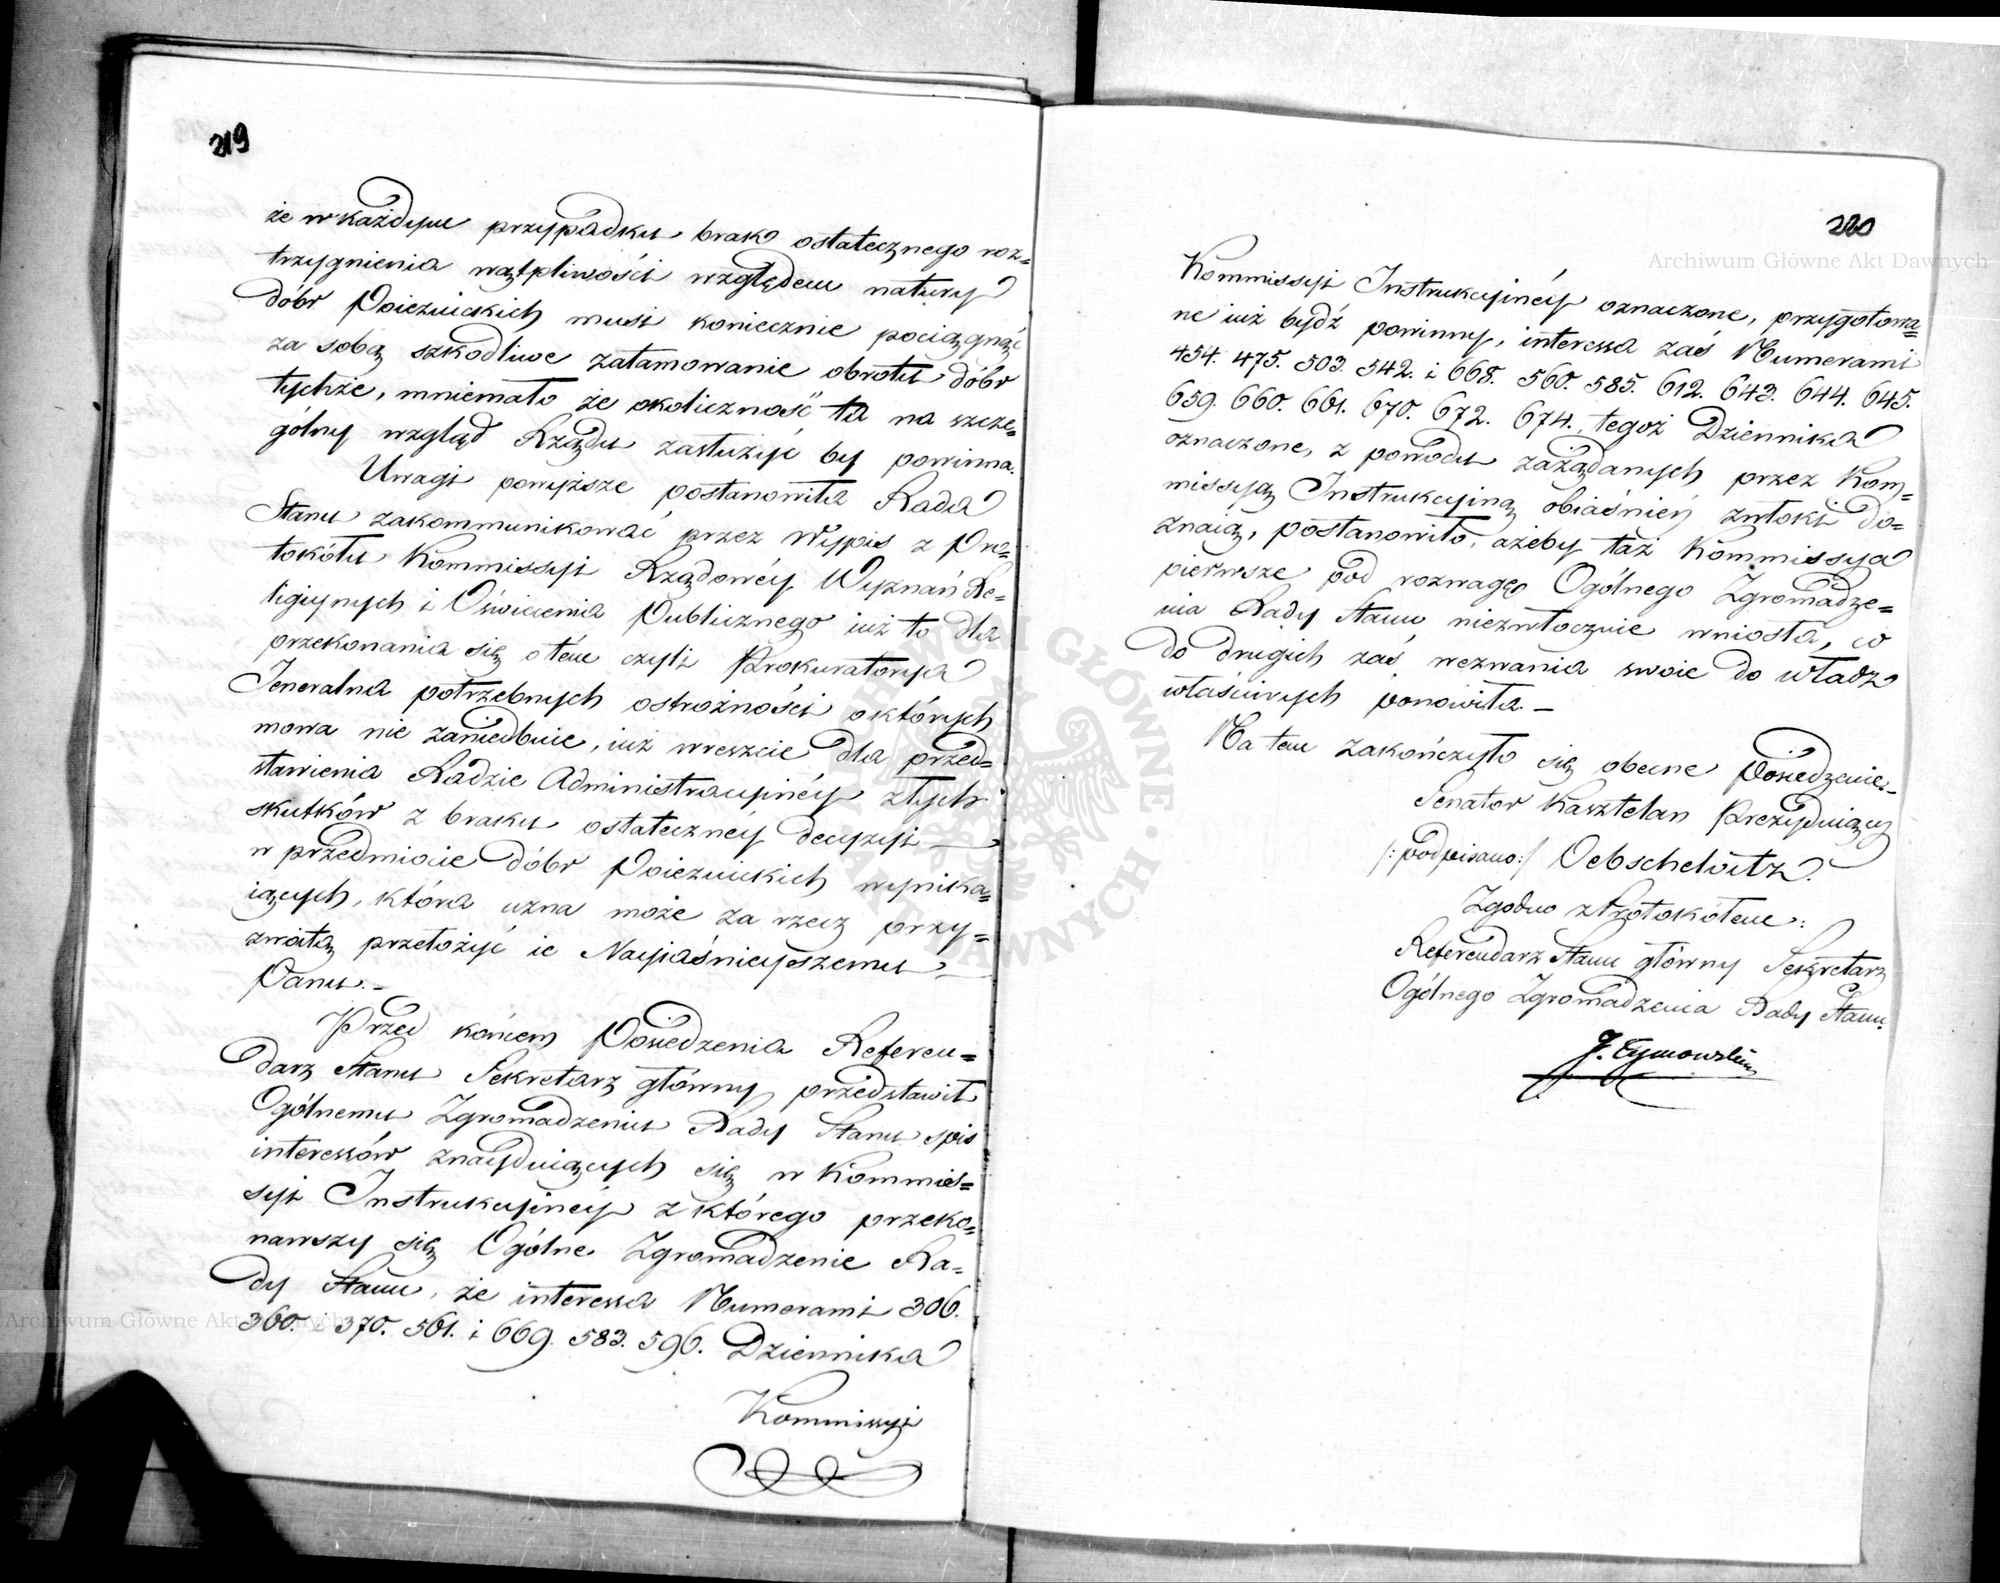 219
że w każdym przypadku brak ostatecznego roz=
trzygnienia wątpliwości względem natury
dóbr Poiezuickich musi koniecznie pociągnąć
za sobą szkodliwe zatamowanie obrotu dóbr
tychże, mniemało że okoliczność ta na szcze=
gólny wzgląd Rządu zasłużyć by powinna.
Uwagi powyższe postanowiła Rada
Stanu zakommunikować przez Wypis z Pro=
tokółu Kommissyi Rządowéy Wyznań Re=
ligiynych i Oświecenia Publicznego iuż to dla
przekonania się o tém czyli Prokuratorya
Jeneralna potrzebnych ostrożności o których
mowa nie zaniedbuie, iuż wreszcie dla przed=
stawienia Radzie Administracyinéy złych
skutków z braku ostatecznéy decyzyi
w przedmiocie dóbr Poiezuickich wynika=
iących, która uzna może za rzecz przy=
zwoitą przełożyć ie Nayiaśnieyszemu
Panu.–
Przed końcem Posiedzenia Referen=
darz Stanu Sekretarz główny przedstawił
Ogólnemu Zgromadzeniu Rady Stanu spis
interessów znayduiących się w Kommis=
syi Instrukcyinéy z którego przeko=
nawszy się Ogólne Zgromadzenie Ra=
dy Stanu, że interessa Numerami 306.
360. i 370. 561. i 669. 583. 596. Dziennika
Kommissyi
220
Kommissyi Instrukcyinéy oznaczone, przygotowa=
ne iuż bydź powinny, interessa zaś Numerami
454. 475. 503. 542. i 668. 560. 585. 612. 643. 644. 645.
659. 660. 661. 670. 672. 674. tegoż Dziennika
oznaczone, z powodu zażądanych przez Kom=
missyą Instrukcyiną obiaśnień zwłoki do=
znaią, postanowiło, ażeby taż Kommissya
pierwsze pod rozwagę Ogólnego Zgromadze=
nia Rady Stanu niezwłocznie wniosła, co
do drugich zaś wezwania swoie do władz
właściwych ponowiła.–
Na tem zakończyło się obecne Posiedzenie.–
Senator Kasztelan Prezyduiący
/:podpisano:/ Oebschelwitz.
Zgodno z Protokółem:
Referendarz Stanu główny Sekretarz
Ogólnego Zgromadzenia Rady Stanu.
J. Tymowski
Archiwum Główne Akt Dawnych
Archiwum Główne Akt Dawnych
ARCHIWUM GŁÓWNE AKT DAWNYCH